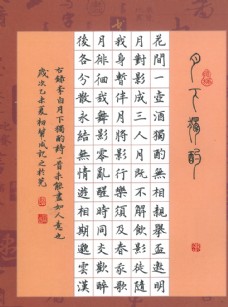 月下獨酌
花間一壺酒獨酌無相親舉盃邀明
月對影成三人月既不解飲影徒隨
我身暫伴月將影行樂須及春我歌
月徘徊我舞影零亂醒時同交歡醉
後各分散永結無情遊相期邈雲漢
右錄李白月下獨酌詩一首未能盡如人意也
歲次乙未夏